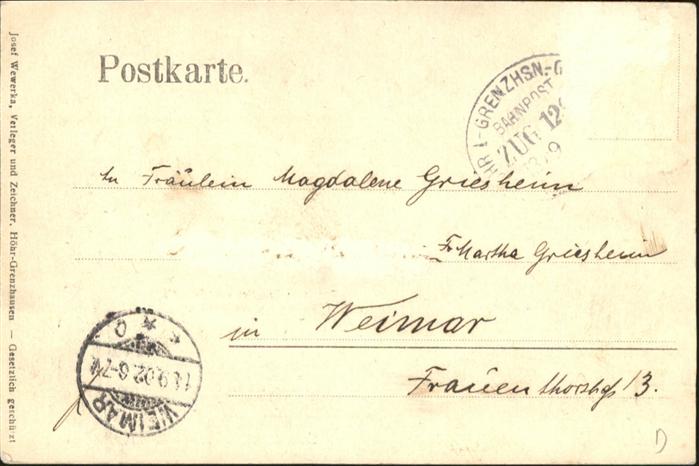 Postkarte.
HR-GRENZHSN.-G
BAHNPOST
ZUG 129
An Fräulein Magdalene Griesheim
Fr. Martha Griesheim
in Weimar
Frauenthorstr. 13.
WEIMAR
13.9.02.6-7N.
* c
Josef Wewerka, Verleger und Zeichner, Höhr-Grenzhausen — Gesetzlich geschützt
D